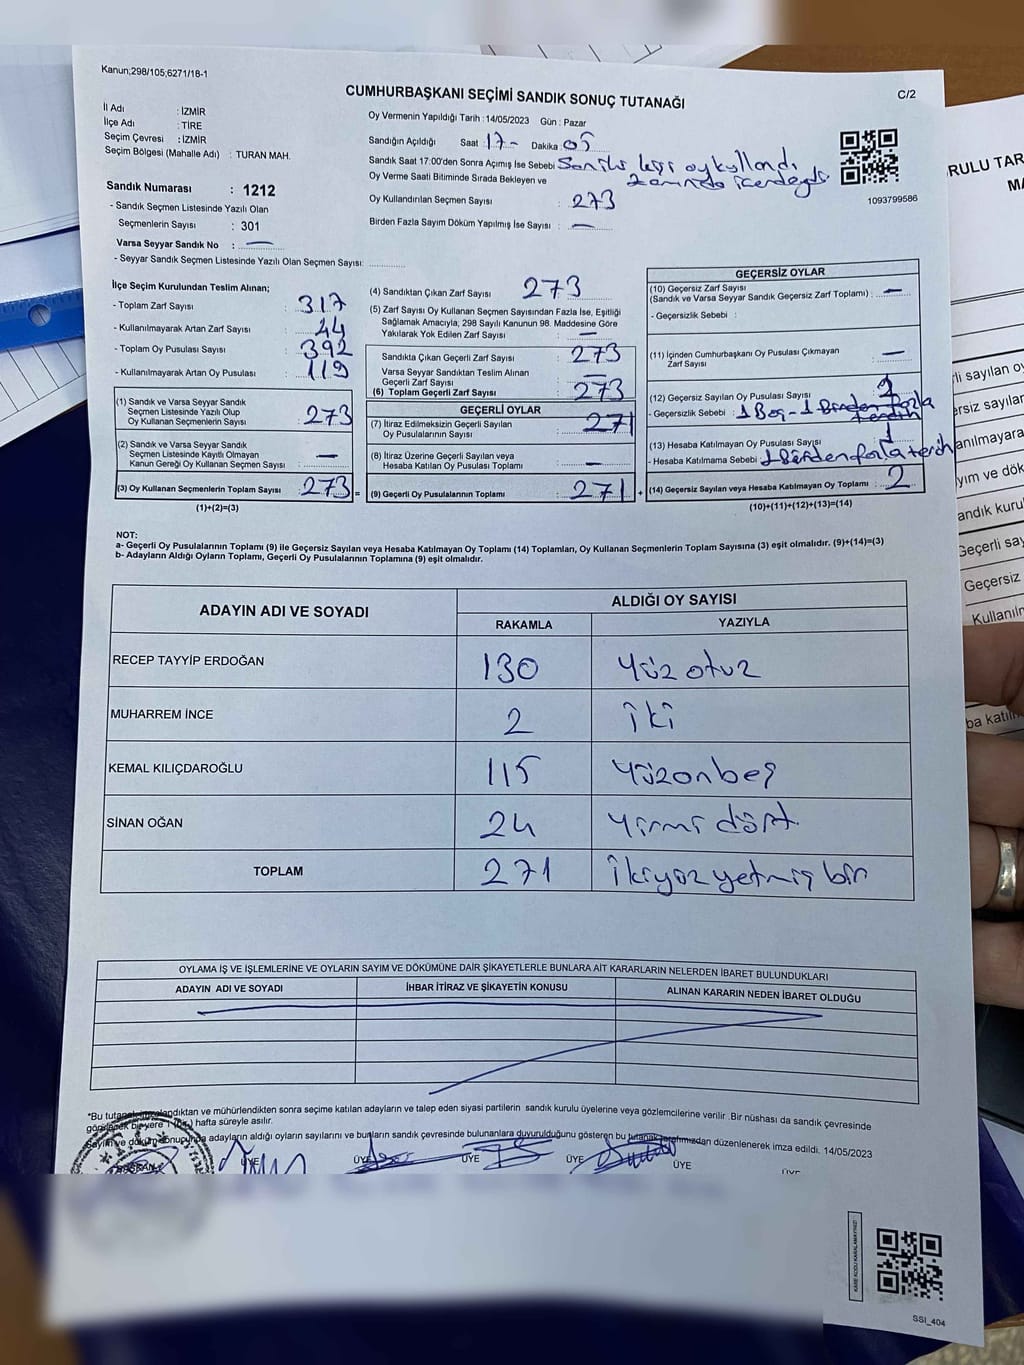 Kanun;298/105;6271/18-1
C/2
CUMHURBAŞKANI SEÇİMİ SANDIK SONUÇ TUTANAĞI
İl Adı : İZMİR
İlçe Adı : TİRE
Seçim Çevresi : İZMİR
Seçim Bölgesi (Mahalle Adı) : TURAN MAH.
Sandık Numarası : 1212
- Sandık Seçmen Listesinde Yazılı Olan
Seçmenlerin Sayısı : 301
Varsa Seyyar Sandık No : —
- Seyyar Sandık Seçmen Listesinde Yazılı Olan Seçmen Sayısı:
Oy Vermenin Yapıldığı Tarih : 14/05/2023 Gün : Pazar
Sandığın Açıldığı Saat 17- Dakika 05
Sandık Saat 17:00'den Sonra Açımış İse Sebebi kişi oy kullandı
Oy Verme Saati Bitiminde Sırada Bekleyen ve
Oy Kullandırılan Seçmen Sayısı : 273
Birden Fazla Sayım Döküm Yapılmış İse Sayısı : —
1093799586
İlçe Seçim Kurulundan Teslim Alınan;
- Toplam Zarf Sayısı : 317
- Kullanılmayarak Artan Zarf Sayısı : 44
- Toplam Oy Pusulası Sayısı : 392
- Kullanılmayarak Artan Oy Pusulası : 119
(1) Sandık ve Varsa Seyyar Sandık
Seçmen Listesinde Yazılı Olup
Oy Kullanan Seçmenlerin Sayısı : 273
(2) Sandık ve Varsa Seyyar Sandık
Seçmen Listesinde Kayıtlı Olmayan
Kanun Gereği Oy Kullanan Seçmen Sayısı : —
(3) Oy Kullanan Seçmenlerin Toplam Sayısı : 273 =
(1)+(2)=(3)
(4) Sandıktan Çıkan Zarf Sayısı : 273
(5) Zarf Sayısı Oy Kullanan Seçmen Sayısından Fazla İse, Eşitliği
Sağlamak Amacıyla; 298 Sayılı Kanunun 98. Maddesine Göre
Yakılarak Yok Edilen Zarf Sayısı : —
Sandıkta Çıkan Geçerli Zarf Sayısı : 273
Varsa Seyyar Sandıktan Teslim Alınan
Geçerli Zarf Sayısı : —
(6) Toplam Geçerli Zarf Sayısı : 273
GEÇERLİ OYLAR
(7) İtiraz Edilmeksizin Geçerli Sayılan
Oy Pusulalarının Sayısı : 271
(8) İtiraz Üzerine Geçerli Sayılan veya
Hesaba Katılan Oy Pusulası Toplamı : —
(9) Geçerli Oy Pusulalarının Toplamı : 271 +
GEÇERSİZ OYLAR
(10) Geçersiz Zarf Sayısı
(Sandık ve Varsa Seyyar Sandık Geçersiz Zarf Toplamı) : —
- Geçersizlik Sebebi :
(11) İçinden Cumhurbaşkanı Oy Pusulası Çıkmayan
Zarf Sayısı : —
(12) Geçersiz Sayılan Oy Pusulası Sayısı :
- Geçersizlik Sebebi : 1 Boş - 1 Birden fazla
(13) Hesaba Katılmayan Oy Pusulası Sayısı : 1
- Hesaba Katılmama Sebebi : 1 Birden fazla tercih
(14) Geçersiz Sayılan veya Hesaba Katılmayan Oy Toplamı : 2
(10)+(11)+(12)+(13)=(14)
NOT:
a- Geçerli Oy Pusulalarının Toplamı (9) ile Geçersiz Sayılan veya Hesaba Katılmayan Oy Toplamı (14) Toplamları, Oy Kullanan Seçmenlerin Toplam Sayısına (3) eşit olmalıdır. (9)+(14)=(3)
b- Adayların Aldığı Oyların Toplamı, Geçerli Oy Pusulalarının Toplamına (9) eşit olmalıdır.
ADAYIN ADI VE SOYADI ALDIĞI OY SAYISI
RAKAMLA YAZIYLA
RECEP TAYYİP ERDOĞAN 130 Yüz otuz
MUHARREM İNCE 2 İki
KEMAL KILIÇDAROĞLU 115 Yüzonbeş
SİNAN OĞAN 24 Yirmi dört
TOPLAM 271 İkiyüz yetmiş bir
OYLAMA İŞ VE İŞLEMLERİNE VE OYLARIN SAYIM VE DÖKÜMÜNE DAİR ŞİKAYETLERLE BUNLARA AİT KARARLARIN NELERDEN İBARET BULUNDUKLARI
ADAYIN ADI VE SOYADI İHBAR İTİRAZ VE ŞİKAYETİN KONUSU ALINAN KARARIN NEDEN İBARET OLDUĞU
*Bu mühürlendikten sonra seçime katılan adayların ve talep eden siyasi partilerin sandık kurulu üyelerine veya gözlemcilerine verilir. Bir nüshası da sandık çevresinde
hafta süreyle asılır.
adayların aldığı oyların sayılarını ve bunların sandık çevresinde bulunanlara duyurulduğunu gösteren bu tutanak tarafımızdan düzenlenerek imza edildi. 14/05/2023
BAŞKAN ÜYE ÜYE ÜYE ÜYE ÜYE ÜYE
SSI_404